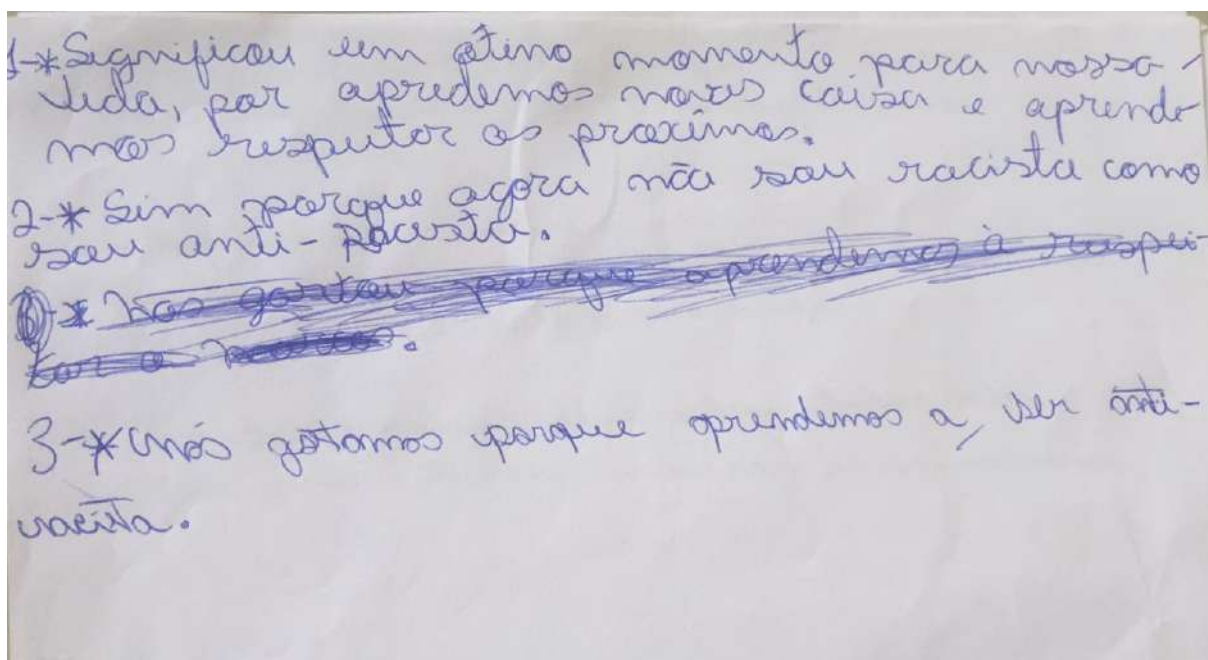 1-*Significou um ótimo momento para nossa
vida, por apredemos novas coisa e aprende
mos respeitor os proximos.
2-* Sim porque agora não sou racista como
sou anti-racista.
* Nos gostou porque aprendemos à respei-
tar o
3-*Nós gotamos porque aprendemos a, ser anti-
racista.